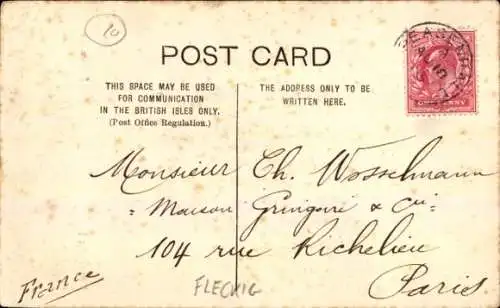 10
PEASENHALL
POST CARD
THIS SPACE MAY BE USED
FOR COMMUNICATION
IN THE BRITISH ISLES ONLY.
(Post Office Regulation.)
THE ADDRESS ONLY TO BE
WRITTEN HERE.
ONE PENNY
Monsieur Ch. Wosselmann
Maison Gringoire & Cie
104 rue Richelieu
Paris.
France
FLECKIG